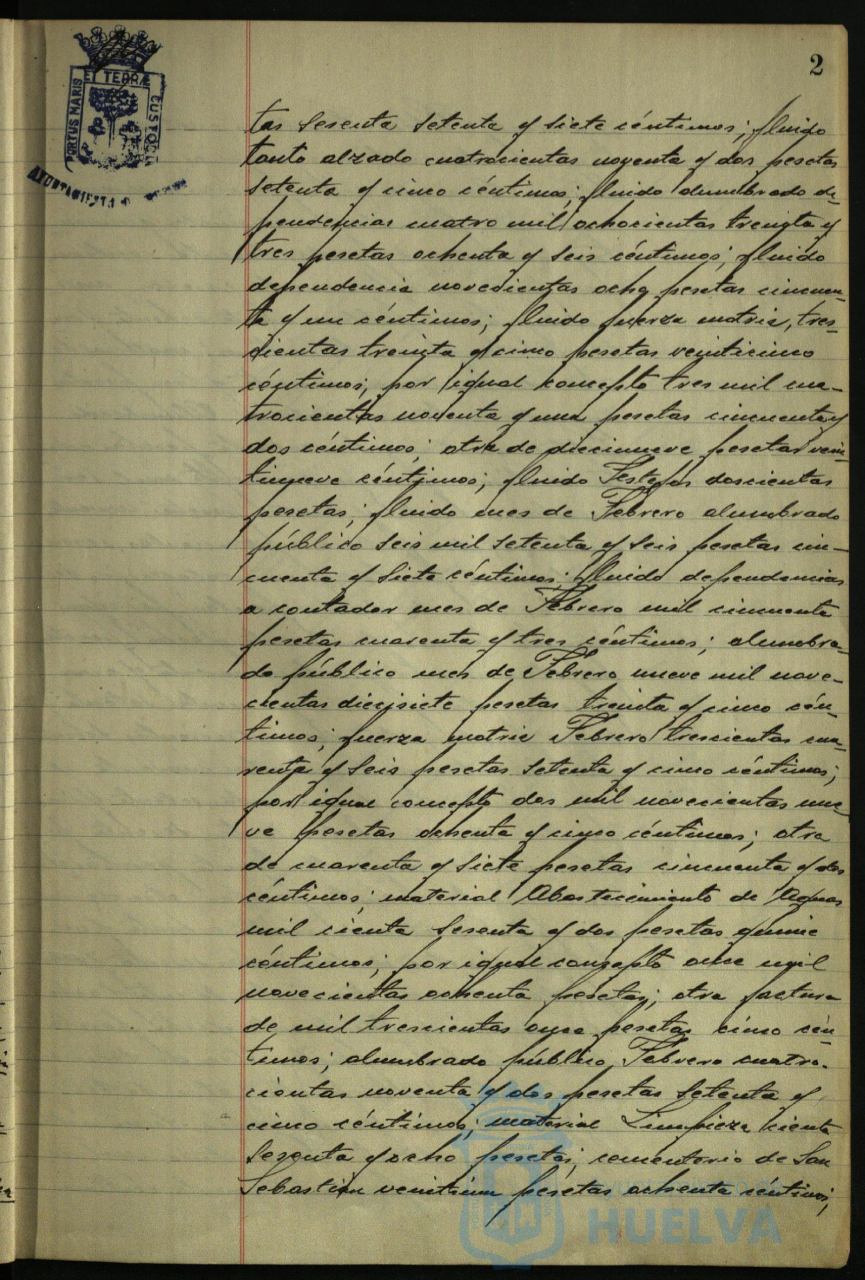 2
PORTUS MARIS
ET TERRÆ
CUSTODIA
AYUNTAMIENTO
tas sesenta setenta y siete céntimos; fluido
tanto alzado cuatrocientas noventa y dos pesetas
setenta y cinco céntimos; fluido alumbrado de-
pendencias cuatro mil ochocientas treinta y
tres pesetas ochenta y seis céntimos; fluido
dependencia novecientas ocho pesetas cincuen-
ta y un céntimos; fluido fuerza motriz, tres-
cientas treinta y cinco pesetas veinticinco
céntimos; por igual concepto tres mil cua-
trocientas noventa y una pesetas cincuenta y
dos céntimos; otra de diecinueve pesetas vein-
tinueve céntimos; fluido Festejos doscientas
pesetas; fluido mes de Febrero alumbrado
público seis mil setenta y seis pesetas cin-
cuenta y siete céntimos; fluido dependencias
a contador mes de Febrero mil cincuenta
pesetas cuarenta y tres céntimos; alumbra-
do público mes de Febrero nueve mil nove-
cientas diecisiete pesetas treinta y cinco cén-
timos; fuerza motriz Febrero trescientas cua-
renta y seis pesetas setenta y cinco céntimos;
por igual concepto dos mil novecientas nue-
ve pesetas ochenta y cinco céntimos; otra
de cuarenta y siete pesetas cincuenta y dos
céntimos; material Abastecimiento de Aguas
mil cienta sesenta y dos pesetas quince
céntimos; por igual concepto once mil
novecientas ochenta pesetas; otra factura
de mil trescientas once pesetas cinco cén-
timos; alumbrado público Febrero cuatro-
cientas noventa y dos pesetas setenta y
cinco céntimos; material Limpieza cienta
sesenta y ocho pesetas; cementerio de San
Sebastian veintiun pesetas ochenta céntimos;
HUELVA